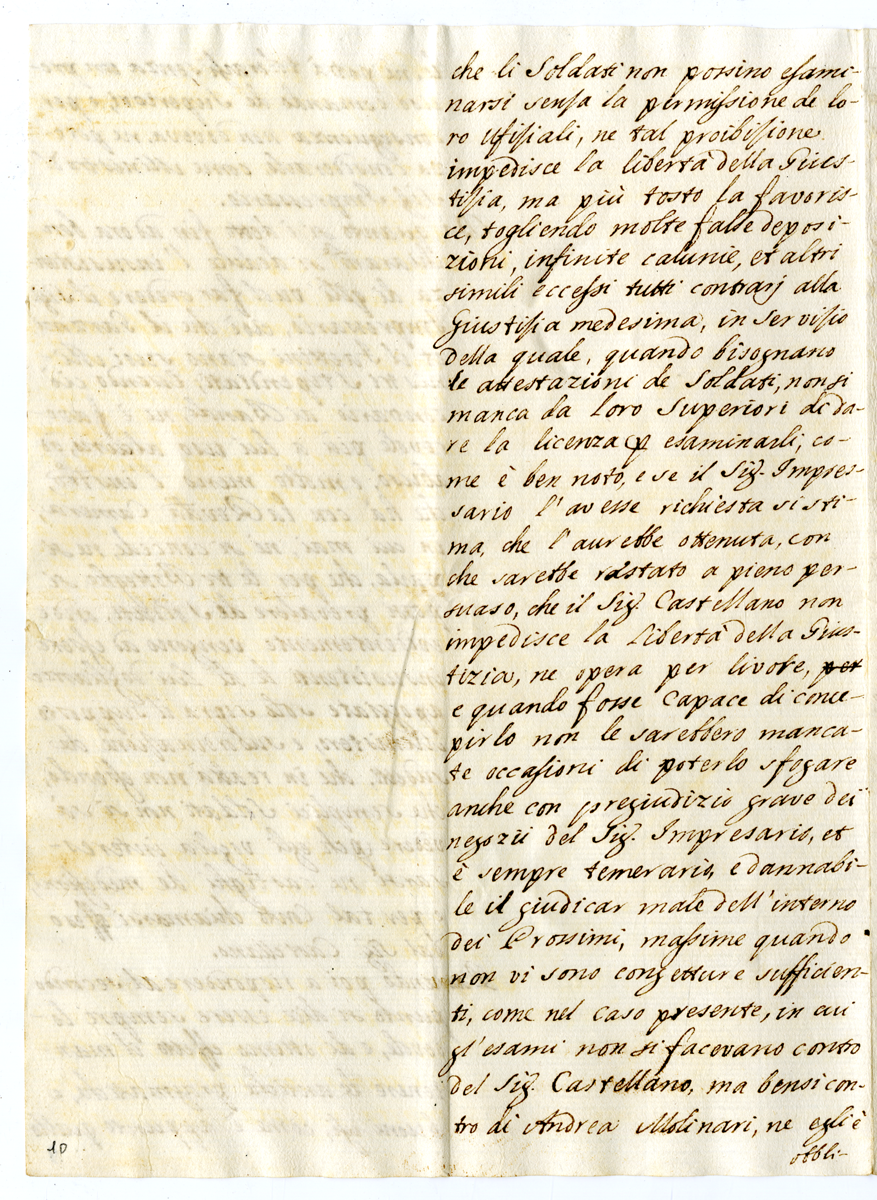 che li Soldati non possino esami-
narsi sensa la permissione de lo-
ro Ufisiali, ne tal proibissione
impedisce la libertà della Gius-
tisia, ma più tosto la favoris-
ce, togliendo molte false deposi-
zioni, infinite calunie, et altri
simili eccessi tutti contrarj alla
Giustisia medesima, in servisio
della quale, quando bisognano
le attestazioni de Soldati, non si
manca da loro Superiori di da-
re la licenza p esaminarli, co-
me è ben noto, e se il Sig. Impres-
sario l'avesse richiesta si sti-
ma, che l'aurebbe ottenuta, con
che sarebbe restato a pieno per-
suaso, che il Sig. Castellano non
impedisce la libertà della Gius-
tizia, ne opera per livore, per
e quando fosse capace di conce-
pirlo non le sarebbero manca-
te occasioni di poterlo sfogare
anche con pregiudizio grave dei
negozii del Sig. Impresario, et
è sempre temerario, e dannabi-
le il giudicar male dell'interno
dei Prossimi, massime quando
non vi sono conjetture sufficien-
ti, come nel caso presente, in cui
gl'esami non si facevano contro
del Sig. Castellano, ma bensi con-
tro di Andrea Molinari, ne egli è
obbli-
10